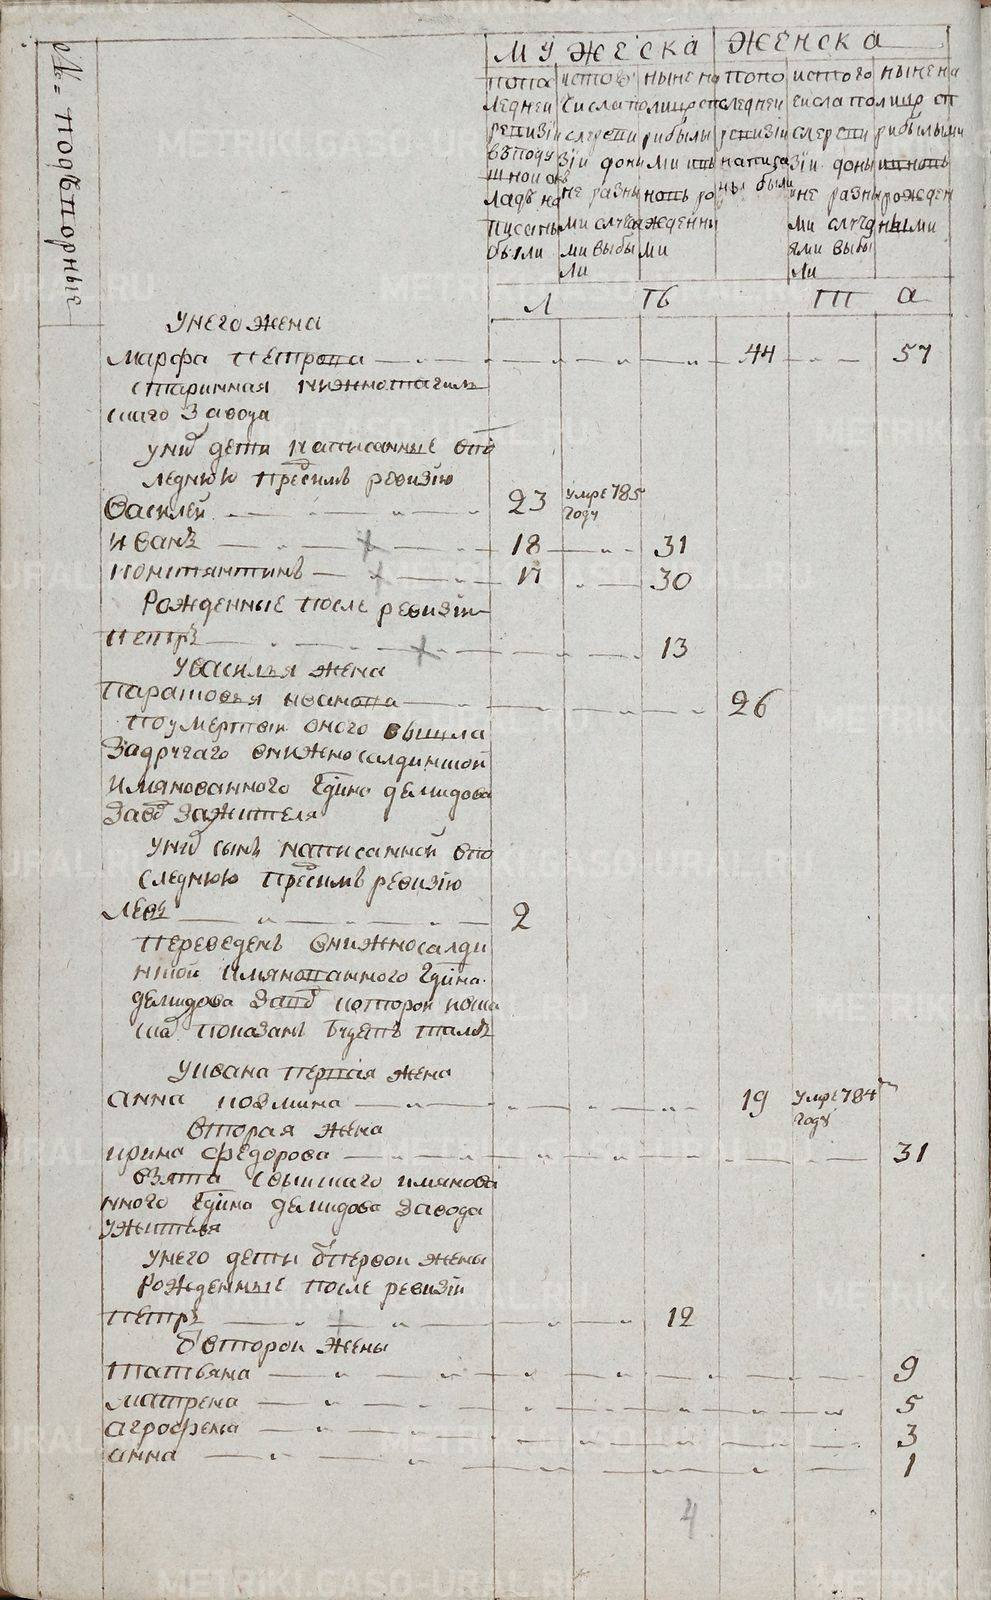 № = подворные
МУЖЕСКА ЖЕНСКА
попо следней ревизiи в подушной окладъ написаны были
истого числа после ревизiи до ныне разными случаями выбыли
ныне на лицо с прибылыми и вновь рожденными
попо следней ревизiи написаны были
истого числа после ревизiи до ныне разными случаями выбыли
ныне на лицо с прибылыми и вновь рожденными
Л Ѣ Т А
У него жена
марфа петрова 44 57
старинная нижнотагиль
скаго завода
у нихъ дети написанные впо
леднюю пред симъ ревизiю
василей 23 умре 785
году
иванъ 18 31
константинъ 17 30
Рожденные после ревизiи
петръ 13
У василья жена
парасковья иванова 26
по умертвiи оного вышла
за другаго внижносалдинской
имянованного Гдина демидова
завод за жителя
у них сынъ написанной впо
следнюю пред симъ ревизiю
левъ 2
переведенъ внижносалди
нской имянованного Гдина
демидова завод которой
показанъ будетъ тамъ
У ивана первая жена
анна козмина 19 умре 784
году
вторая жена
ирина федорова 31
взята свышшаго имянова
нного Гдина демидова завода
у жителя
У него дети от первой жены
Рожденные после ревизiи
петръ 12
от второй жены
татьяна 9
матрена 5
агрофена 3
анна 1
4
METRIKI.GASO-URAL.RU